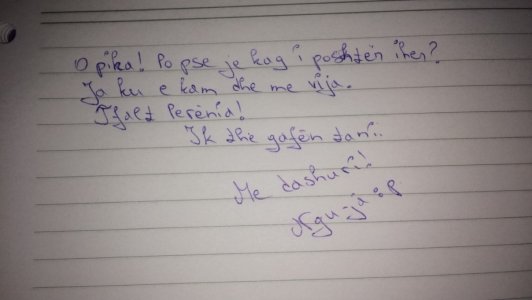 O pika! Po pse je kaq i poshtën iher?
Ja ku e kam dhe me vija.
T'falt Perënia!
Ik dhe gafën tani..
Me dashuri!